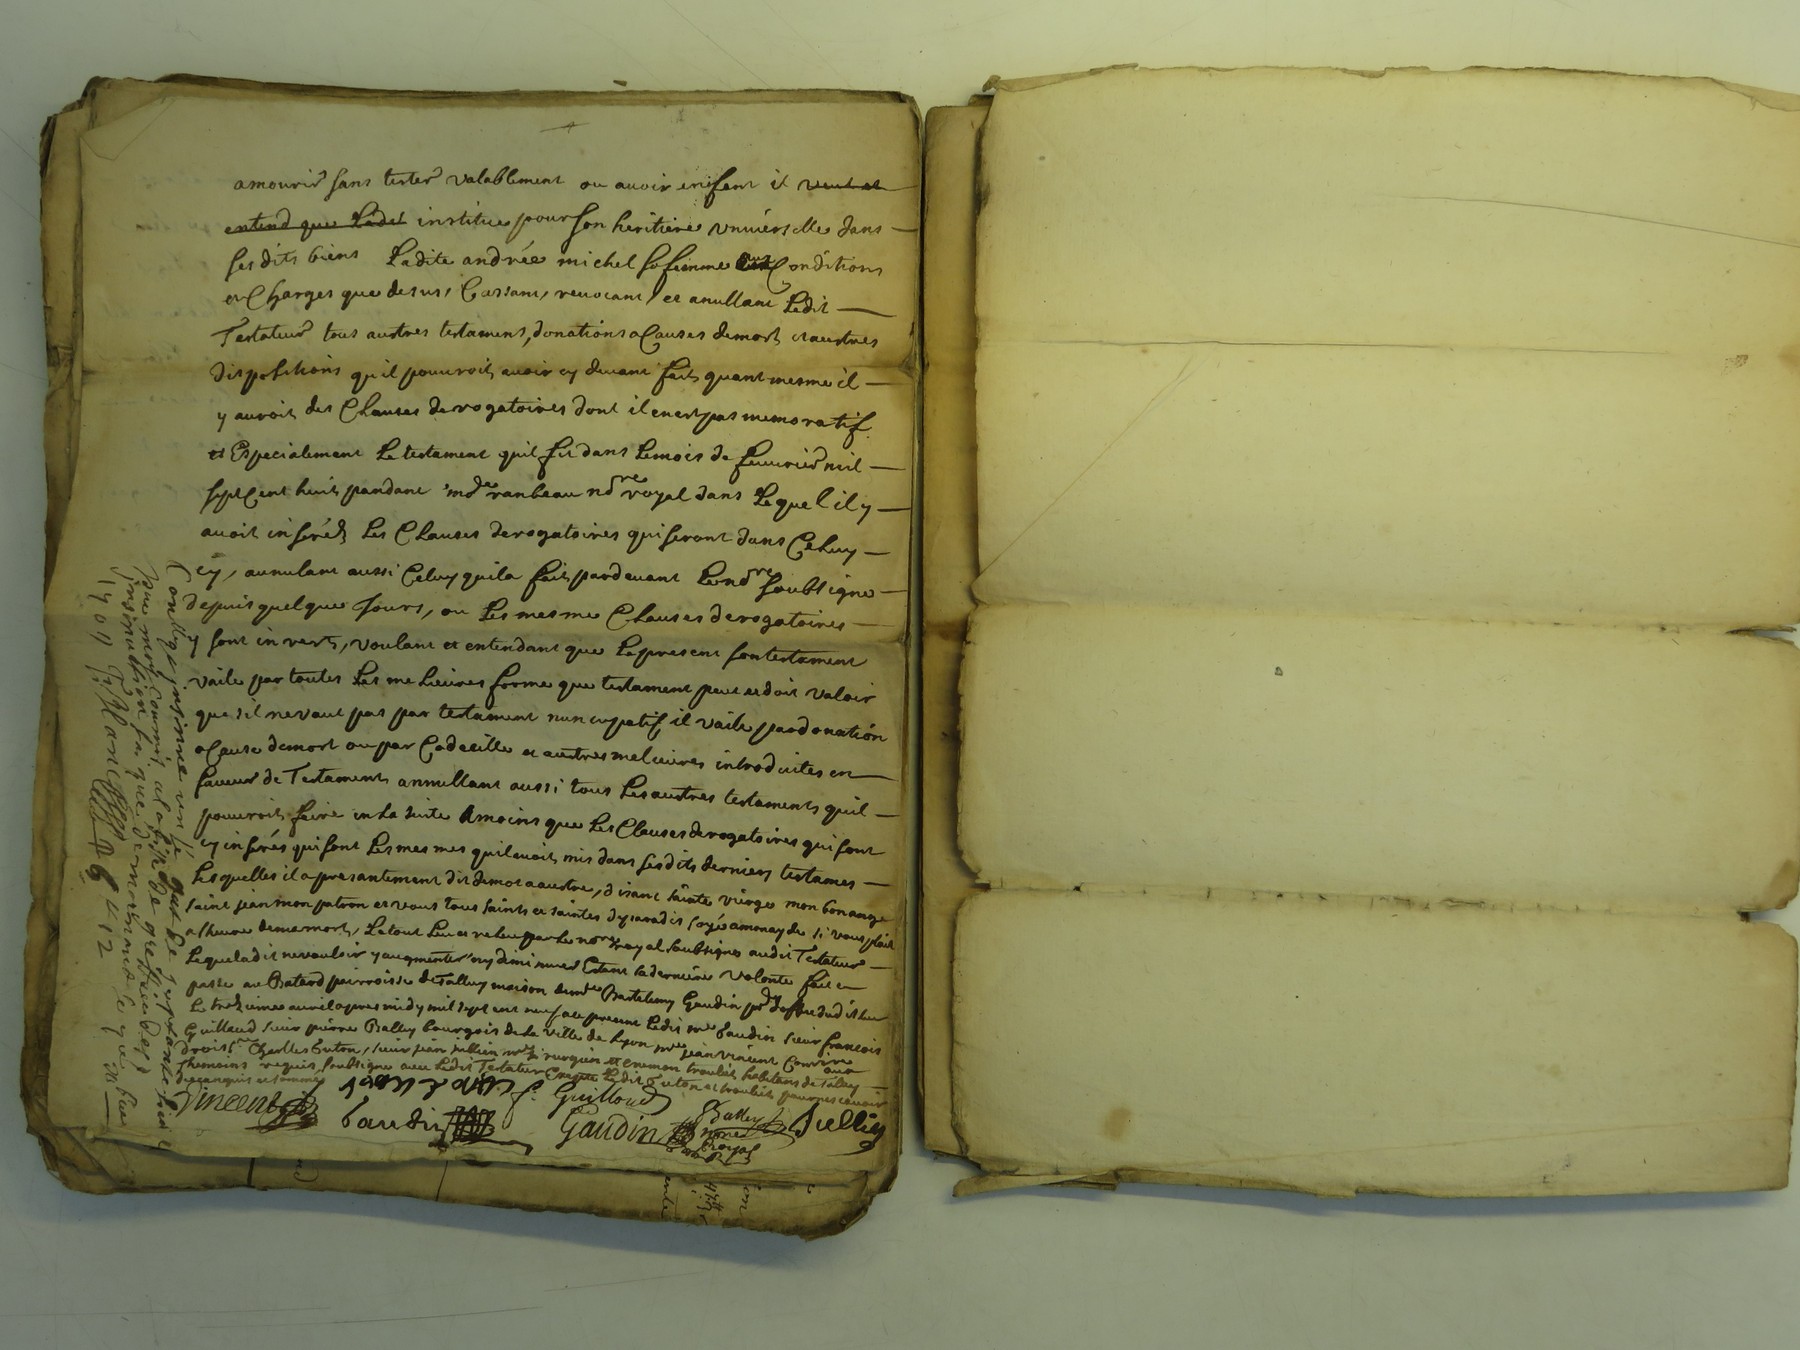 amourir sans tester valablement ou avoir enfent il veut et
entend que Ledit institue pour son heritiere vniverselle dans
ses dits biens Ladite andrée michel sa femme Conditions
et Charges que desus, Cassant, revocant et anullant Ledit
Testateur tous austres testament, donations a Causes demort et austres
dispositions quil pouvroit avoir cy devant fait quant mesme il
y auroit des Clauses derogatoires dont il enest pas memoratif
et Especialement Le testament quil fit dans Lemois de fevvrier mil
sept Cent huit pardant me ranbeau nore royal dans Lequel il y
avoit inseréz Les Clauses derogatoires qui seront dans Celuy
cy, annulant aussi Celuy quila fait pardevant Lenore soubsigne
depuis quelque Jours, ou Les mesme Clauses derogatoires
y sont inserés, voulant et entendant que Lepresent son testament
vaile par toutes Les melieures forme que testament peut et doit valoir
que sil ne vaut pas par testament nuncupatif, il vaile par donation
a Cause demort ou par Codecille et austres melieures introduites en
faveur de Testament annullant aussi tous Les austres testaments quil
pouvroit faire en La suite Amoins que Les Clauses derogatoires qui sont
cy inserés qui sont Les mesmes quil avoit mis dans ses dits derniers testames
Lesquelles il a presantement dit demot a austre, disant sainte vierge mon bon ange
saint jean mon patron et vous tous saints et saintes dy paradis soyé a mon ayde si vous plait
a lheure demamort, Le tout Leu et releu par Le nore royal soubsigne audit Testateur
Lequel a dit ne vouloir y augmenter ny diminuer Estant sa derniere volonte fait et
passe au Batard parroisse de Talluy maison de me Bartelemy Gaudin
Le trezieme avril apres midy mil sept cent neuf au present Ledit me Gaudin sieur francois
Guilloud sieur pierre Balley bourgois de La ville de Lyon me jean vincent
droit, Charlles Guton, sieur jean jullien me sirurgien et enemon habitans de Taluy
themoins requis soubsigne avec Ledit Testateur Excepte Ledit Guton et pour ne scavoir
de ce enquis et sommes
Vincent f. Guilloud
Gaudin Gaudin Balley Jullien
nore
royal
Controllé, insinué
par moy commis
insinuation
1709